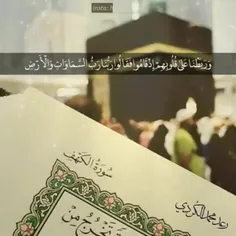 وَرَبَطْنَا عَلَىٰ قُلُوبِهِمْ إِذْ قَامُوا فَقَالُوا رَبُّنَا رَبُّ السَّمَاوَاتِ وَالْأَرْضِ
سُورَةُ الكَهْفِ
رعد محمد الكردي